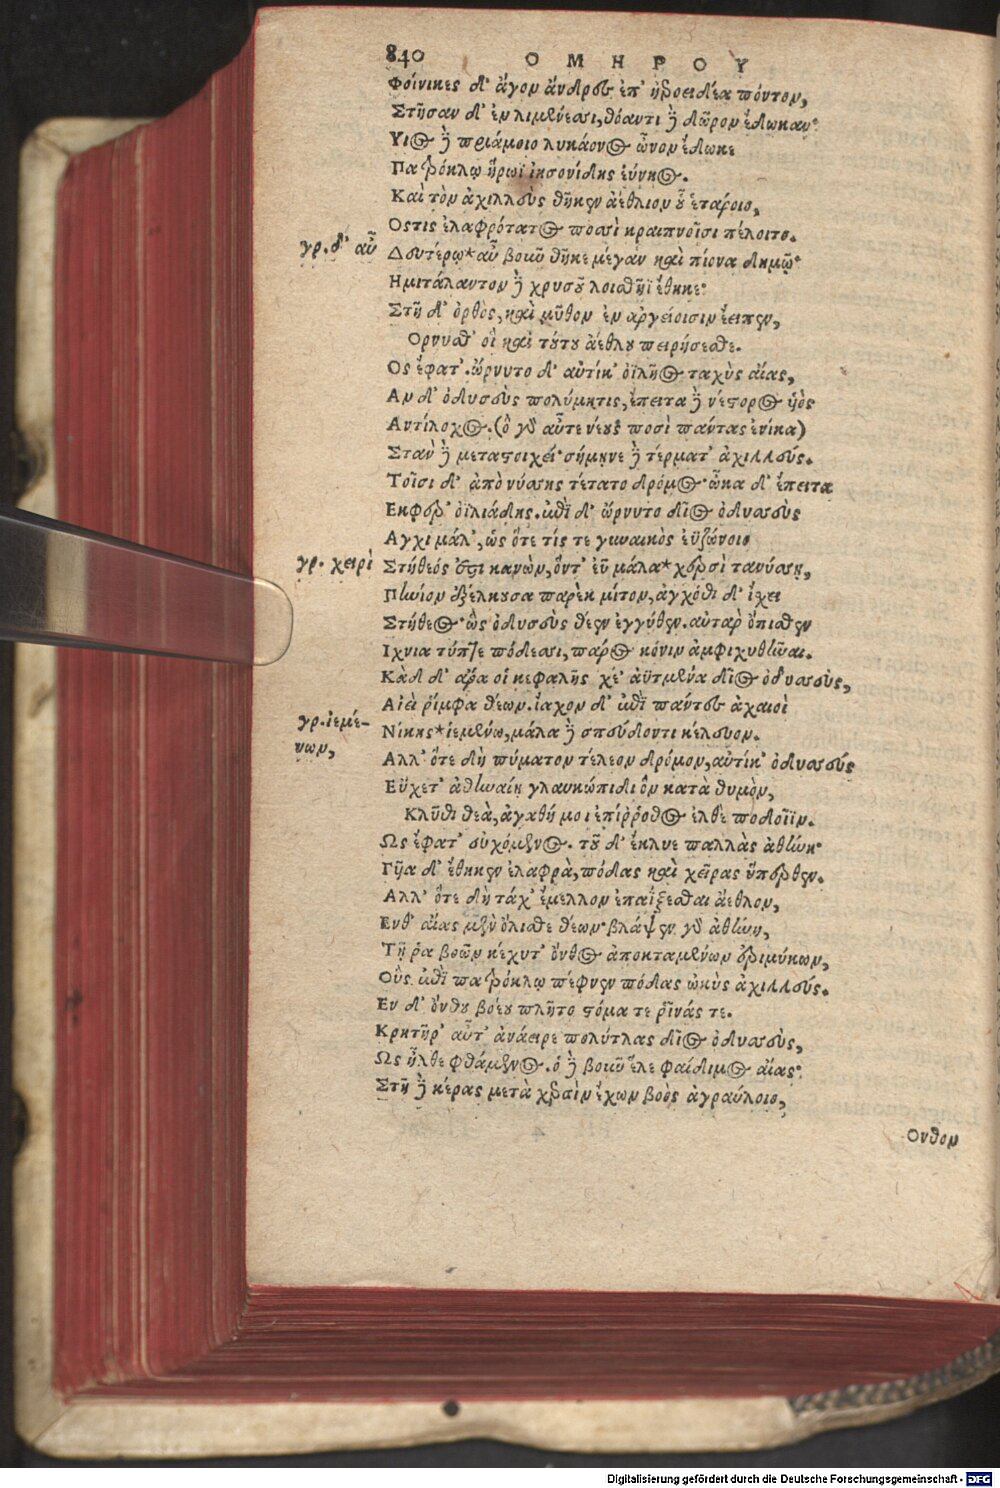 840 ΟΜΗΡΟΥ
Φοίνικες δ' ἄγον ἄνδρες ἐπ' ἠεροειδέα πόντον,
Στῆσαν δ' ἐν λιμένεσσι, θόαντι δὲ δῶρον ἔδωκαν·
Υἱος δὲ πριάμοιο λυκάονος ὦνον ἔδωκε
Πατρόκλῳ ἥρωϊ ἰησονίδης εὔνηος.
Καὶ τὸν ἀχιλλεὺς θῆκεν ἀέθλιον οὗ ἑτάροιο,
Οστις ἐλαφρότατος ποσσὶ κραιπνοῖσι πέλοιτο.
γρ. δ' αὖ
Δευτέρῳ* αὖ βοῦν θῆκε μέγαν καὶ πίονα δημῷ·
Ημιτάλαντον δὲ χρυσοῦ λοισθῆϊ ἔθηκε·
Στῆ δ' ὀρθὸς, καὶ μῦθον ἐν ἀργείοισιν ἔειπεν,
Ορνυσθ' οἳ καὶ τούτου ἀέθλου πειρήσεσθε.
Ος ἔφατ'. ὤρνυτο δ' αὐτίκ' ὀϊλῆος ταχὺς αἴας,
Αν δ' ὀδυσσεὺς πολύμητις, ἔπειτα δὲ νέστορος ὑὸς
Αντίλοχος. (ὃ γὰρ αὖτε νέους ποσὶ πάντας ἐνίκα)
Στὰν δὲ μεταστοιχεί· σήμηνε δὲ τέρματ' ἀχιλλεύς.
Τοῖσι δ' ἀπὸ νύσσης τέτατο δρόμος· ὦκα δ' ἔπειτα
Εκφερ' ὀϊλιάδης. ἐπὶ δ' ὤρνυτο δῖος ὀδυσσεὺς
Αγχι μάλ', ὡς ὅτε τίς τε γυναικὸς ἐϋζώνοιο
γρ. χειρὶ
Στήθεός ἐστι κανὼν, ὅντ' εὖ μάλα* χερσὶ τανύσσῃ,
Πηνίον ἐξέλκουσα παρὲκ μίτον, ἀγχόθι δ' ἴχει
Στήθεος· ὣς ὀδυσσεὺς θέεν ἐγγύθεν. αὐτὰρ ὄπισθεν
Ιχνια τύπτε πόδεσσι, πάρος κόνιν ἀμφιχυθῆναι.
Κὰδ δ' ἄρα οἱ κεφαλῆς χέ' ἀϋτμένα δῖος ὀδυσσεὺς,
Αἰεὶ ῥίμφα θέων. ἴαχον δ' ἐπὶ πάντες ἀχαιοὶ
γρ. ἱεμέ-
νων,
Νίκης* ἱεμένῳ, μάλα δὲ σπεύδοντι κέλευον.
Αλλ' ὅτε δὴ πύματον τέλεον δρόμον, αὐτίκ' ὀδυσσεύς
Εὔχετ' ἀθηναίῃ γλαυκώπιδι ὃν κατὰ θυμὸν,
Κλῦθι θεὰ, ἀγαθή μοι ἐπίῤῥοθος ἐλθὲ ποδοῖϊν.
Ως ἔφατ' εὐχόμενος. τοῦ δ' ἔκλυε παλλὰς ἀθήνη·
Γῆα δ' ἔθηκεν ἐλαφρὰ, πόδας καὶ χεῖρας ὕπερθεν.
Αλλ' ὅτε δὴ τάχ' ἔμελλον ἐπαΐξεσθαι ἄεθλον,
Ενθ' αἴας μὲν ὄλισθε θέων· βλάψεν γὰρ ἀθήνη,
Τῇ ῥα βοῶν κέχυτ' ὄνθος ἀποκταμένων ἐριμύκων,
Οὓς ἐπὶ πατρόκλῳ πέφνεν πόδας ὠκὺς ἀχιλλεύς.
Εν δ' ὄνθου βοέου πλῆτο στόμα τε ῥῖνάς τε.
Κρητῆρ' αὖτ' ἀνάειρε πολύτλας δῖος ὀδυσσεὺς,
Ως ἦλθε φθάμενος. ὁ δὲ βοῦν ἕλε φαίδιμος αἴας·
Στῆ δὲ κέρας μετὰ χερσὶν ἔχων βοὸς ἀγραύλοιο,
Ονθον
Digitalisierung gefördert durch die Deutsche Forschungsgemeinschaft - DFG